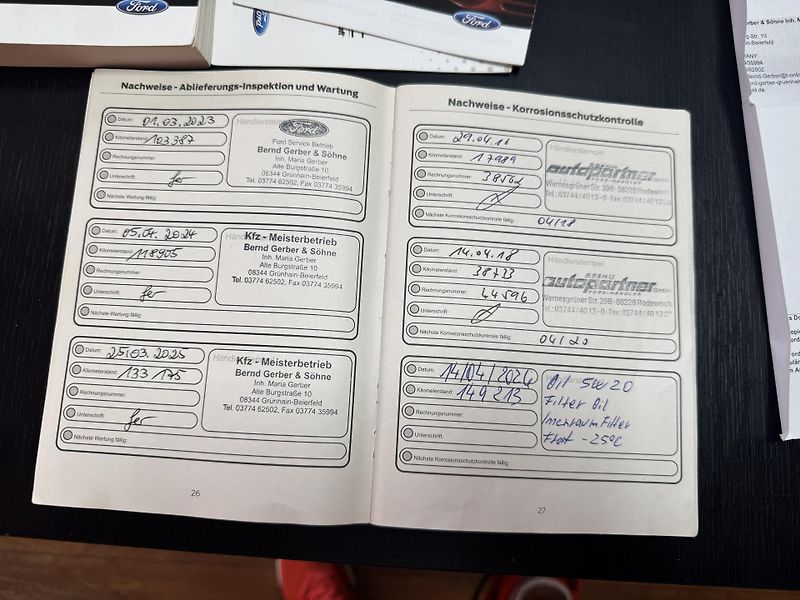 Ford
Ford
Nachweise - Ablieferungs-Inspektion und Wartung
Datum: 01.03.2023
Kilometerstand: 103387
Rechnungsnummer:
Unterschrift:
Nächste Wartung fällig:
Händlerstempel
Ford
Ford Service Betrieb
Bernd Gerber & Söhne
Inh. Maria Gerber
Alte Burgstraße 10
08344 Grünhain-Beierfeld
Tel. 03774 62502, Fax 03774 35994
Datum: 05.04.2024
Kilometerstand: 118905
Rechnungsnummer:
Unterschrift:
Nächste Wartung fällig:
Kfz - Meisterbetrieb
Bernd Gerber & Söhne
Inh. Maria Gerber
Alte Burgstraße 10
08344 Grünhain-Beierfeld
Tel. 03774 62502, Fax 03774 35994
Datum: 25.03.2025
Kilometerstand: 133 175
Rechnungsnummer:
Unterschrift:
Nächste Wartung fällig:
Kfz - Meisterbetrieb
Bernd Gerber & Söhne
Inh. Maria Gerber
Alte Burgstraße 10
08344 Grünhain-Beierfeld
Tel. 03774 62502, Fax 03774 35994
26
Nachweise - Korrosionsschutzkontrolle
Datum: 29.04.16
Kilometerstand: 17989
Rechnungsnummer:
Unterschrift:
Nächste Korrosionsschutzkontrolle fällig: 04/18
Händlerstempel
autopartner GmbH
FORD-HÄNDLER
Wernesgrüner Str. 39B · 08228 Rodewisch
Tel.: 03744/4013-0 · Fax: 03744/4013
Datum: 14.04.18
Kilometerstand: 38723
Rechnungsnummer: 44596
Unterschrift:
Nächste Korrosionsschutzkontrolle fällig: 04/20
Händlerstempel
autopartner GmbH
FORD-HÄNDLER
Wernesgrüner Str. 39B · 08228 Rodewisch
Tel.: 03744/4013-0 · Fax: 03744/4013
Datum: 14/04/2026
Kilometerstand: 149213
Rechnungsnummer:
Unterschrift:
Nächste Korrosionsschutzkontrolle fällig:
Öil 5W20
Filter Öil
Innenraum Filter
Frost -25°C
27